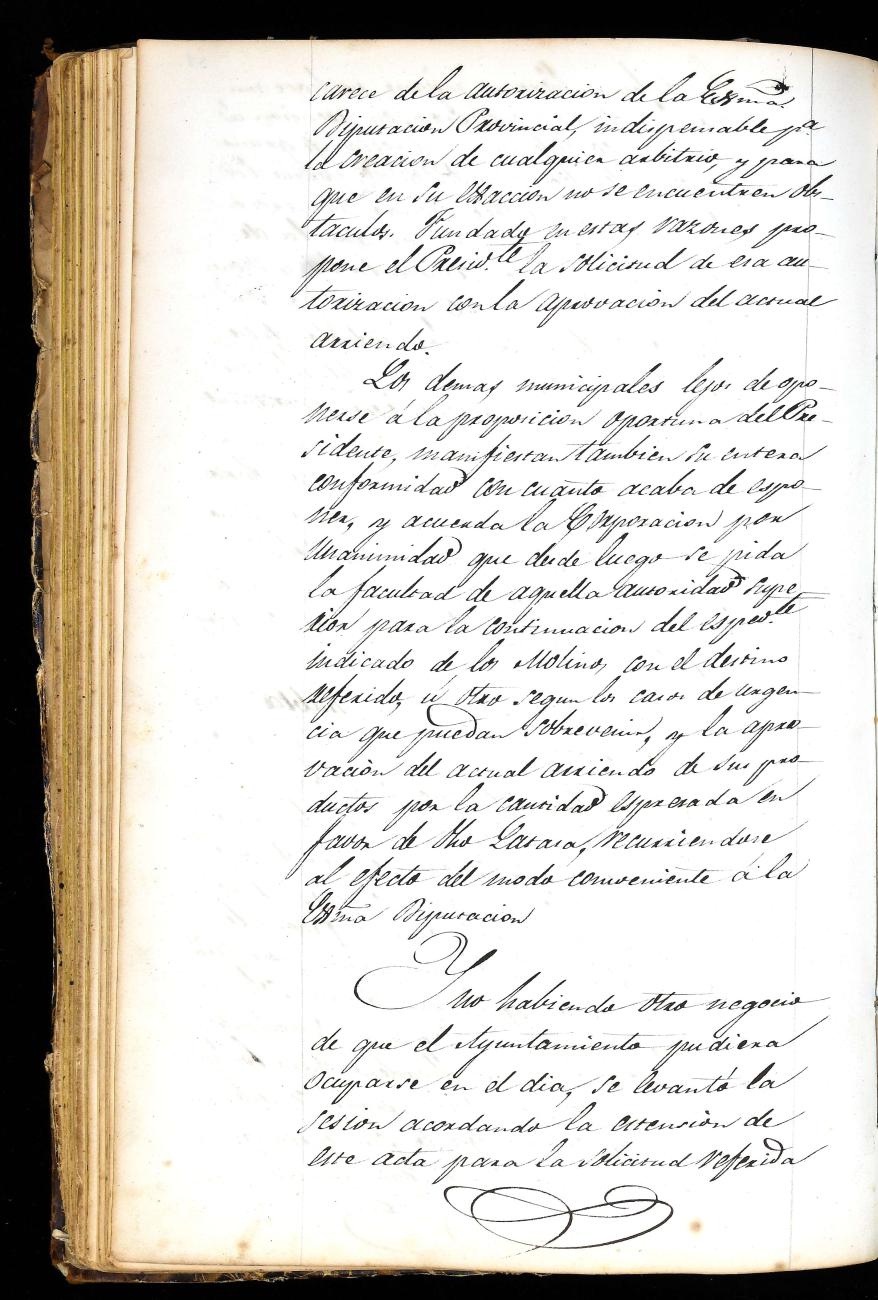 carece de la autorizacion de la Exma
Diputacion Provincial, indispensable pa
la creacion de cualquier arbitrio, y para
que en su exaccion no se encuentren obs-
taculos. Fundado en estas razones pro-
pone el Presid.te la solicitud de esa au-
torizacion con la aprovacion del actual
arriendo.
Los demas municipales lejos de opo-
nerse á la proposicion oportuna del Pre-
sidente, manifiestan tambien su entera
conformidad con cuanto acaba de espo-
ner, y acuerda la Corporacion por
unanimidad que desde luego se pida
la facultad de aquella autoridad supe
rior para la continuacion del esped.te
indicado de los Molinos con el destino
referido, ú otro segun los casos de urgen-
cia que puedan sobrevenir, y la apro-
vacion del actual arriendo de sus pro-
ductos por la cantidad espresada en
favor de dho Lasasa, recurriendose
al efecto del modo conveniente á la
Exma Diputacion
Y no habiendo otro negocio
de que el Ayuntamiento pudiera
ocuparse en el dia, se levantó la
sesion acordando la estension de
este acta para la solicitud referida